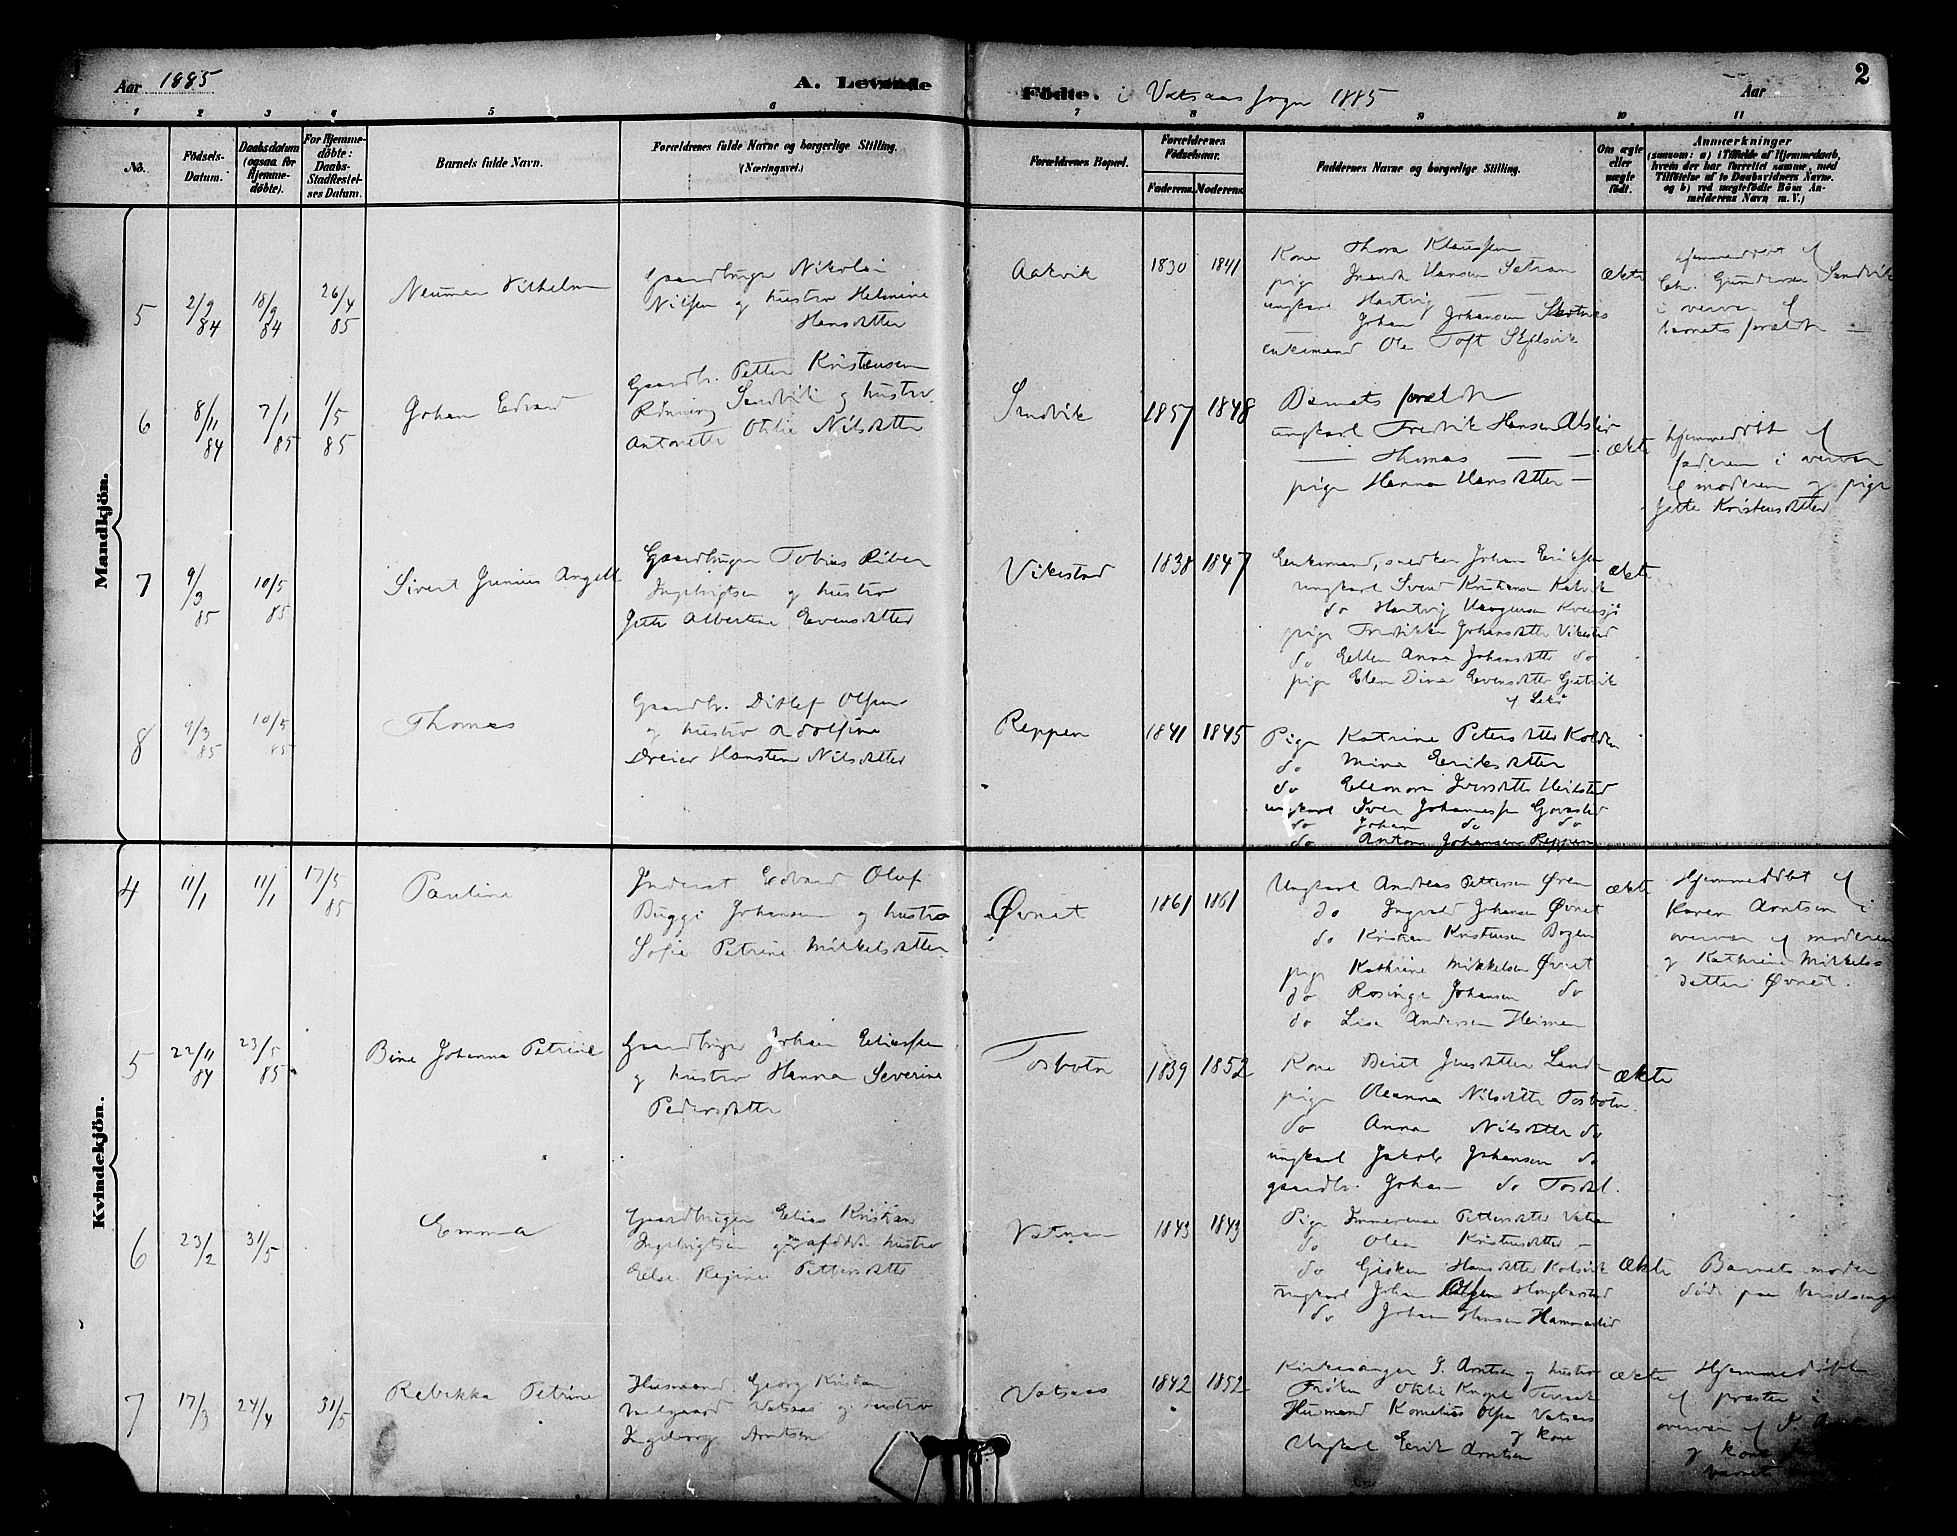 Aar 1885
A. Levende Födte. i Vatsaas sogn 1885
Aar
2
1 2 3 4 5 6 7 8 9 10 11
No.
Födsels-Datum.
Daabsdatum (ogsaa for Hjemme-döbte).
For Hjemme-döbte: Daabs-Stadfæstel-ses Datum.
Barnets fulde Navn.
Forældrenes fulde Navne og borgerlige Stilling. (Næringsvei.)
Forældrenes Bopæl.
Forældrenes Födselsaar.
Faderens. Moderens.
Faddernes Navne og borgerlige Stilling.
Om ægte eller uægte födt.
Anmærkninger
(saasom: a) i Tilfælde af Hjemmedaab,
hvem der har forrettet samme, med
Tilföielse af to Daabsvidners Navne.
og b) ved uægtefödte Börn An-
melderens Navn m. V.)
Mandkjön.
5
2/9 84
18/9 84
26/4 85
Neuman Vilhelm
Gaardbruger Nikolai
Nilsen og hustro Helmine
Hansdatter
Aakvik
1830 1841
Kone Thora Klaussen
pige Hansen Setran
ungkarl Hartvig
Johan Johansen
enkemand Ole Toft
ækte
hjemmedøbt af
Chr. Gundersen Sandvik
i overvær af
barnets forældre
6
8/11 84
7/1 85
1/5 85
Johan Edvard
Gaardbr. Petter Kristensen
Rönning Sandvik og hustro
Antonette Otilie Nilsdatter
Sandvik
1857 1848
Barnets forældre
ungkarl Fredrik Hansen
— Thomas — —
pige Hanna Hansdatter —
ækte
hjemmedøbt af
faderen i overvær
af moderen og pige
Jette Kristensdatter
7
9/3 85
10/5 85
Sivert Junius Angell
Gaardbruger Tobias Riber
Ingebrigtsen og hustro
Jette Albertine Evensdatter
Vikestad
1838 1847
Enkemand, snedker Johan Eriksen
ungkarl Svend Kristiansen
do Hartvig
pige Fredrikke Johansdatter Vikestad
do Ellen Anna Johansdatter do
pige Elen Dina Evensdatter
af Lekö
ækte
8
9/3 85
10/5 85
Thomas
Gaardbr. Ditlef Olsen
og hustro Adolfine
Dreier Hansten Nilsdatter
Reppen
1841 1845
Pige Katrine Petersdatter Kolden
do Mina Eriksdatter
do Elleonora Iversdatter
ungkarl Iver Johannessen
do Johan do do
do Anton Johansen Reppen
Kvindekjön.
4
11/1
11/1
17/5 85
Pauline
Inderst Edvard Oluf
Bugge Johansen og hustro
Sofie Petrine Mikkelsdatter
Øvnet
1861 1861
Ungkarl Andreas Pettersen Øren
do Ingvald Johansen Øvnet
do Kristian Kristensen Bogen
pige Kathrine Mikkelsen Øvnet
do Rosinge Johansen do
do Lise Andersen Heimen
ækte
Hjemmedøbt af
Karen Arntsen i
overvær af moderen
og Kathrine Mikkels-
datter Øvnet.
5
22/11 84
23/5 85
Bine Johanna Petrine
Gaardbruger Johan Eliassen
og hustro Hanna Severine
Pedersdatter
Tosbotn
1839 1852
Kone Beret Jensdatter Lande
pige Oleanna Nilsdatter Tosbotn
do Anna Nilsdatter do
ungkarl Jakob Johansen do
gaardbr. Johan do Tosdal.
ækte
6
23/2
31/5
Emma
Gaardbruger Elias Kristian
Ingebrigtsen og afdøde hustro
Else Regine Pettersdatter
Vatnan
1843 1843
Pige Pettersdatter Vatnan
do Olea Kristensdatter —
do Gisken Hansdatter Kolsvik
ungkarl Johan Olsen
do Johan Hansen
ækte
Barnets moder
döde paa barselseng
7
17/3
24/4
31/5
Rebekka Petrine
Husmand Georg Kristian
Vatsaas og hustro
Ingeborg Arntsen
Vatsaas
1842 1852
Kirkesanger I. Arntsen og hustro
Frøken
Husmand Kornelius Olsen Vatsaas
og kone
Ungkarl Erik Arntsen
ækte
Hjemmedøbt
af presten i
overvær af I.
og kone